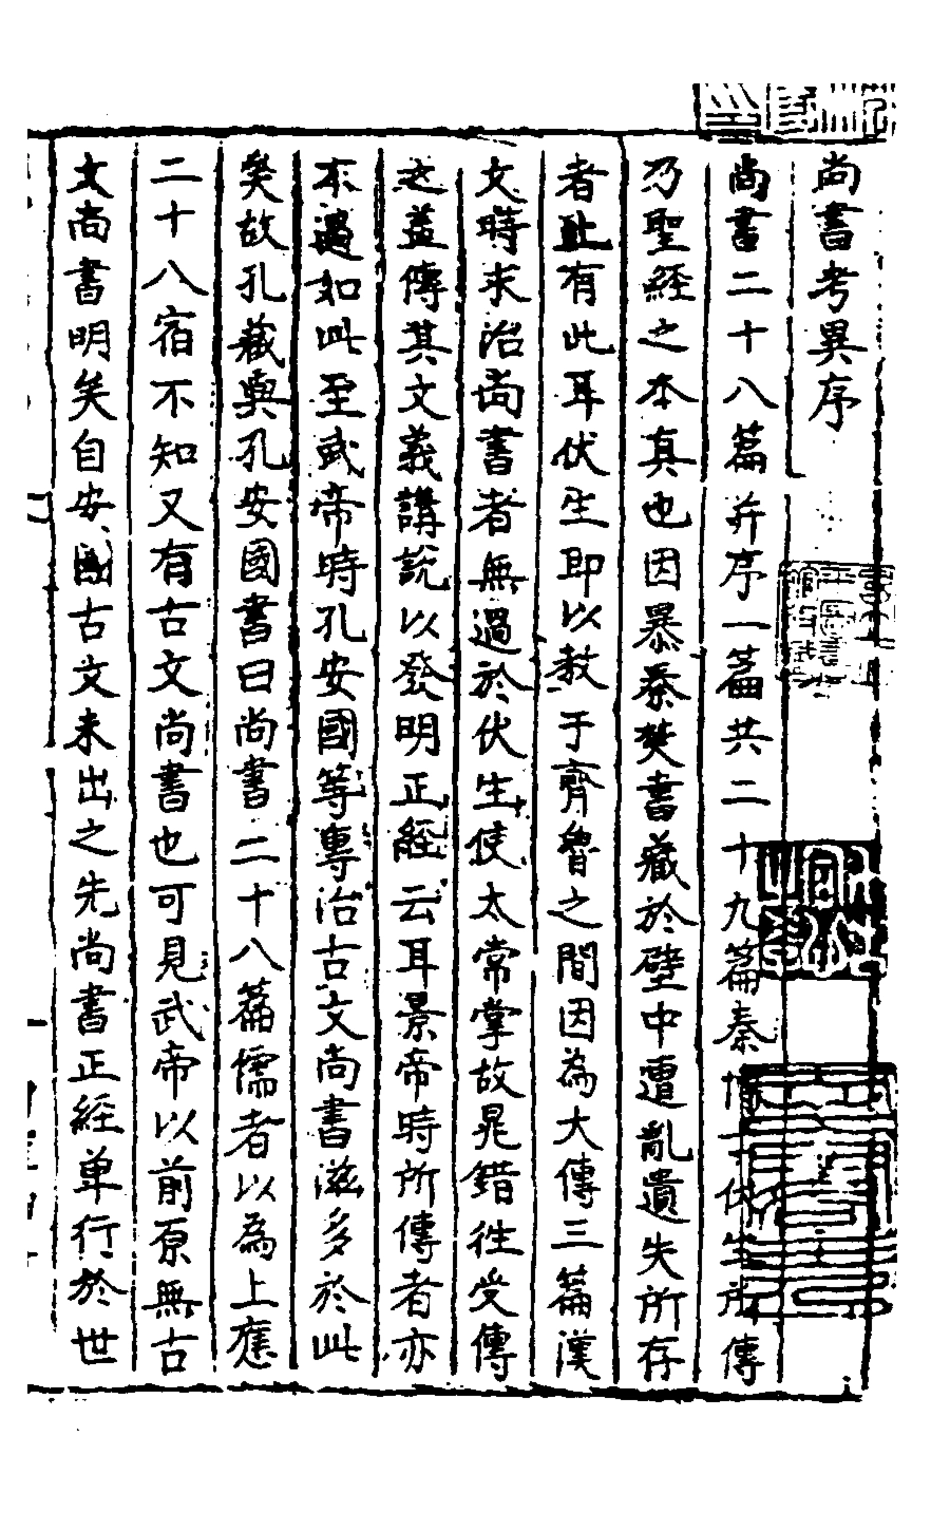 尚書考異序
尚書二十八篇并序一篇共二十九篇秦博士伏生所傳
乃聖經之本真也因暴秦焚書藏於壁中遭亂遺失所存
者止有此耳伏生即以教于齊魯之間因為大傳三篇漢
文時求治尚書者無過於伏生使太常掌故晁錯徃受傳
之蓋傳其文義講說以發明正經云耳景帝時所傳者亦
本過如此至武帝時孔安國等專治古文尚書滋多於此
矣故孔藏與孔安國書曰尚書二十八篇儒者以為上應
二十八宿不知又有古文尚書也可見武帝以前原無古
文尚書明矣自安國古文未出之先尚書正經单行於世